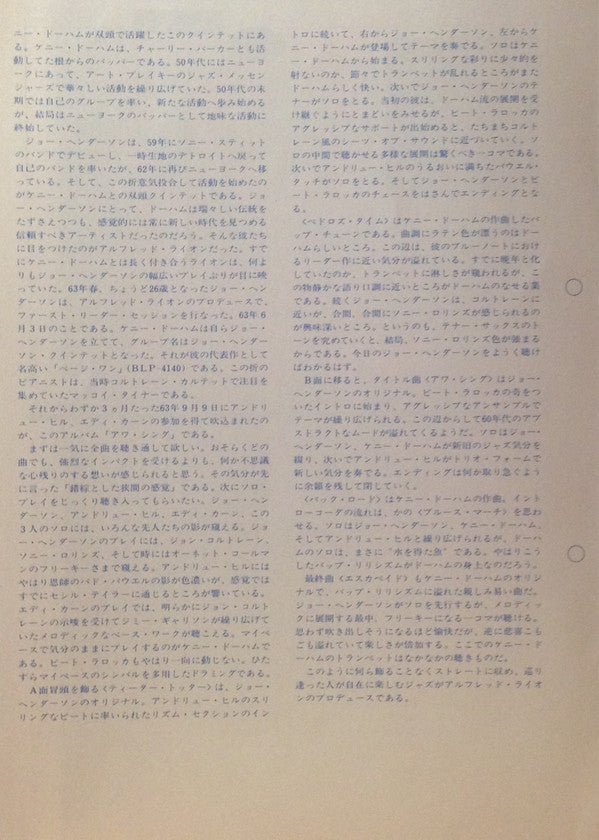 ニー・ドーハムが双頭で活躍したこのクインテットにあ
る。ケニー・ドーハムは、チャーリー・パーカーとも活
動してた根からのバッパーである。50年代にはニューヨ
ークにあって、アート・ブレイキーのジャズ・メッセン
ジャーズで華々しい活動を繰り広げていた。50年代の末
期では自己のグループを率い、新たな活動へ歩み始める
が、結局はニューヨークのバッパーとして地味な活動に
終始していた。
ジョー・ヘンダーソンは、59年にソニー・スティット
のバンドでデビューし、一時生地のデトロイトへ戻って
自己のバンドを率いたが、62年に再びニューヨークへ移
っている。そして、この折意気投合して活動を始めたの
がケニー・ドーハムとの双頭クインテットである。ジョ
ー・ヘンダーソンにとって、ドーハムは瑞々しい伝統を
たずさえつつも、感覚的には常に新しい時代を見つめる
信頼すべきアーティストだったのだろう。そんな彼たち
に目をつけたのがアルフレッド・ライオンだった。すで
にケニー・ドーハムとは長く付き合うライオンは、何よ
りもジョー・ヘンダーソンの幅広いプレイぶりが目に映
っていた。63年春、ちょうど26歳となったジョー・ヘン
ダーソンは、アルフレッド・ライオンのプロデュースで、
ファースト・リーダー・セッションを行なった。63年6
月3日のことである。ケニー・ドーハムは自らジョー・
ヘンダーソンを立てて、グループ名はジョー・ヘンダー
ソン・クインテットとなった。それが彼の代表作として
名高い「ページ・ワン」(BLP 4140) である。この折の
ピアニストは、当時コルトレーン・カルテットで注目を
集めていたマッコイ・タイナーである。
それからわずか3ヵ月たった63年9月9日にアンドリ
ュー・ヒル、エディ・カーンの参加を得て吹込まれたの
が、このアルバム「アワ・シング」である。
まずは一気に全曲を聴き通して欲しい。おそらくどの
曲でも、強烈なインパクトを受けるよりも、何か不思議
な心残りのする想いが感じられると思う。その気分が先
に言った「錯綜とした狭間の感覚」である。次にソロ・
プレイをじっくり聴き入ってもらいたい。ジョー・ヘン
ダーソン、アンドリュー・ヒル、エディ・カーン、この
3人のソロには、いろんな先人たちの影が窺える。ジョ
ー・ヘンダーソンのプレイには、ジョン・コルトレーン、
ソニー・ロリンズ、そして時にはオーネット・コールマ
ンのフリーキーさまで窺える。アンドリュー・ヒルには
やはり恩師のバド・パウエルの影が色濃いが、感覚では
すでにセシル・テイラーに通じるところが響いている。
エディ・カーンのプレイでは、明らかにジョン・コルト
レーンの示唆を受けてジミー・ギャリソンが繰り広げて
いたメロディックなベース・ワークが聴こえる。マイペ
ースで気分のままにプレイするのがケニー・ドーハムで
ある。ピート・ラロッカもやはり一向に動じない。ひた
すらマイペースのシンバルを多用したドラミングである。
A面冒頭を飾る〈ティーター・トッター〉は、ジョー・
ヘンダーソンのオリジナル。アンドリュー・ヒルのスリ
リングなビートに率いられたリズム・セクションのイン
トロに続いて、右からジョー・ヘンダーソン、左からケ
ニー・ドーハムが登場してテーマを奏でる。ソロはケニ
ー・ドーハムから始まる。スリリングな彩りに少々的を
射ないのか、節々でトランペットが乱れるところがまた
ドーハムらしく快い。次いでジョー・ヘンダーソンのテ
ナーがソロをとる。当初の彼は、ドーハム流の展開を受
け継ぐようにとまどいをみせるが、ピート・ラロッカの
アグレッシブなサポートが出始めると、たちまちコルト
レーン風のシーツ・オブ・サウンドに近づいていく。ソ
ロの中間で聴かせる多様な展開は驚くべき一コマである。
次いでアンドリュー・ヒルのうるおいに満ちたパウエル・
タッチがソロをとる。そしてジョー・ヘンダーソンとピ
ート・ラロッカのチェースをはさんでエンディングとな
る。
〈ペドロズ・タイム〉はケニー・ドーハムの作曲したバ
ップ・チューンである。曲調にラテン色が漂うのはドー
ハムらしいところ。この辺は、彼のブルーノートにおけ
るリーダー作に近い気分が溢れている。すでに晩年と化
していたのか、トランペットに淋しさが窺われるが、こ
の物静かな語り口調に近いところがドーハムのなせる業
である。続くジョー・ヘンダーソンは、コルトレーンに
近いが、合間、合間にソニー・ロリンズが感じられるの
が興味深いところ。というのも、テナー・サックスのト
ーンを究めていくと、結局、ソニー・ロリンズ色が強まる
からである。今日のジョー・ヘンダーソンをようく聴け
ばわかるはず。
B面に移ると、タイトル曲〈アワ・シング〉はジョー・
ヘンダーソンのオリジナル。ピート・ラロッカの奇をつ
いたイントロに始まり、アグレッシブなアンサンブルで
テーマが繰り広げられる。この辺からして60年代のアブ
ストラクトなムードが溢れてくるようだ。ソロはジョー・
ヘンダーソン、ケニー・ドーハムが新旧のジャズ気分を
綴り、次いでアンドリュー・ヒルがトリオ・フォームで
新しい気分を奏でる。エンディングは何か取り急ぐよう
に余韻を残して閉じていく。
〈バック・ロード〉はケニー・ドーハムの作曲。イント
ロ―コーダの流れは、かの〈ブルース・マーチ〉を思わ
せる。ソロはジョー・ヘンダーソン、ケニー・ドーハム、
そしてアンドリュー・ヒルと繰り広げられるが、ドーハ
ムのソロは、まさに“水を得た魚”である。やはりこう
したバップ・リリシズムがドーハムの身上なのだろう。
最終曲〈エスカペイド〉もケニー・ドーハムのオリジ
ナルで、バップ・リリシズムに溢れた親しみ易い曲だ。
ジョー・ヘンダーソンがソロを先行するが、メロディック
に展開する最中、フリーキーになる一コマが聴ける。
思わず吹き出しそうになるほど愉快だが、逆に悲喜こも
ごも溢れていて楽しさが倍加する。ここでのケニー・ド
ーハムのトランペットはなかなかの聴きものだ。
このように何ら飾ることなくストレートに収め、巡り
逢った人が自在に楽しむジャズがアルフレッド・ライオ
ンのプロデュースである。